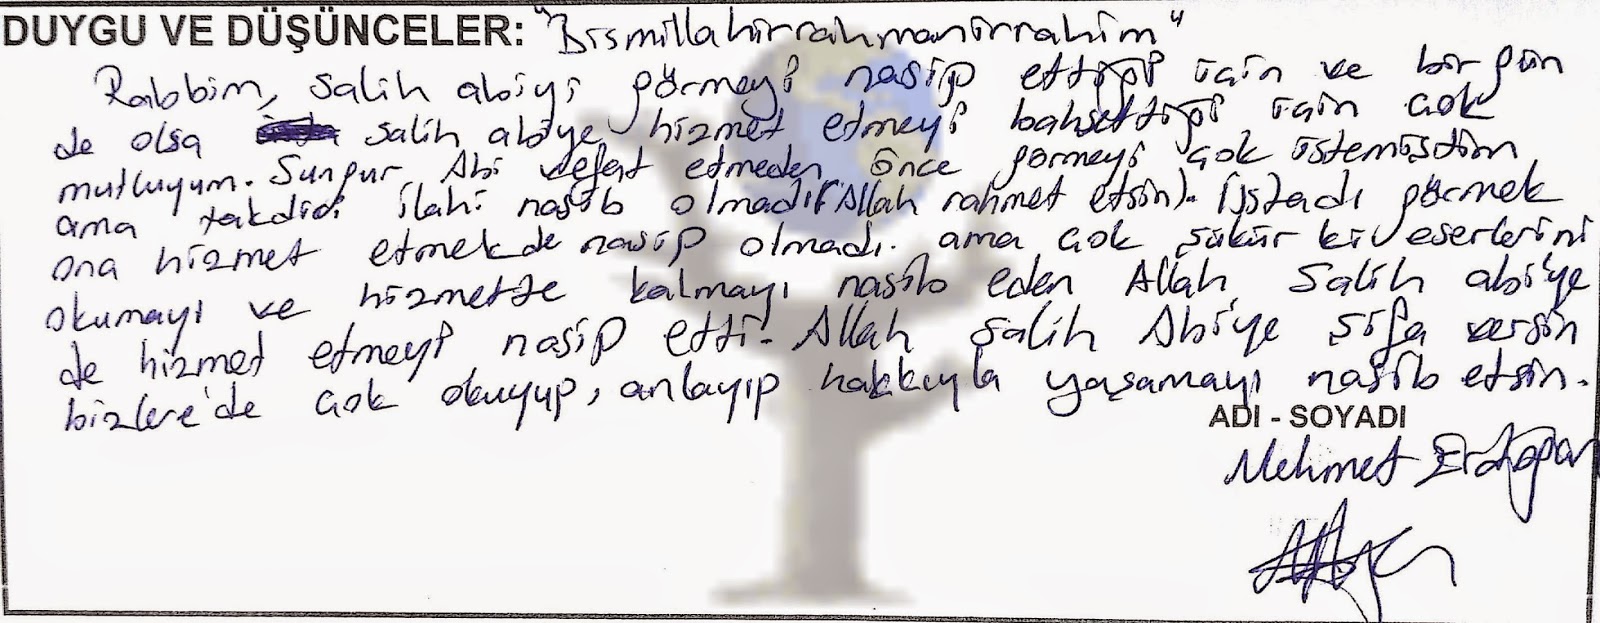 DUYGU VE DÜŞÜNCELER: "Bismillahirrahmanirrahim"
Rabbim, Salih abiyi görmeyi nasip ettiği için ve bir gün
de olsa Salih abiye hizmet etmeyi bahsettiği için çok
mutluyum. Sungur Abi vefat etmeden önce görmeyi çok istemiştim
ama takdiri ilahi nasib olmadı (Allah rahmet etsin). Üstadı görmek
ona hizmet etmekde nasip olmadı. ama çok şükür ki eserlerini
okumayı ve hizmette kalmayı nasib eden Allah, Salih abi'ye
de hizmet etmeyi nasip etti. Allah Salih Abiye şifa versin
bizlere'de çok okuyup, anlayıp hakkıyla yaşamayı nasib etsin.
ADI - SOYADI
Mehmet Erdoğan